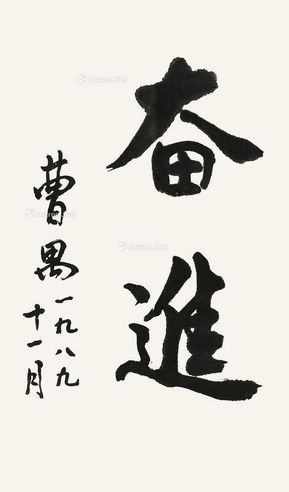 奋進
曹禺一九八九
十一月
Artron.Net
Artron.Net
Artron.Net